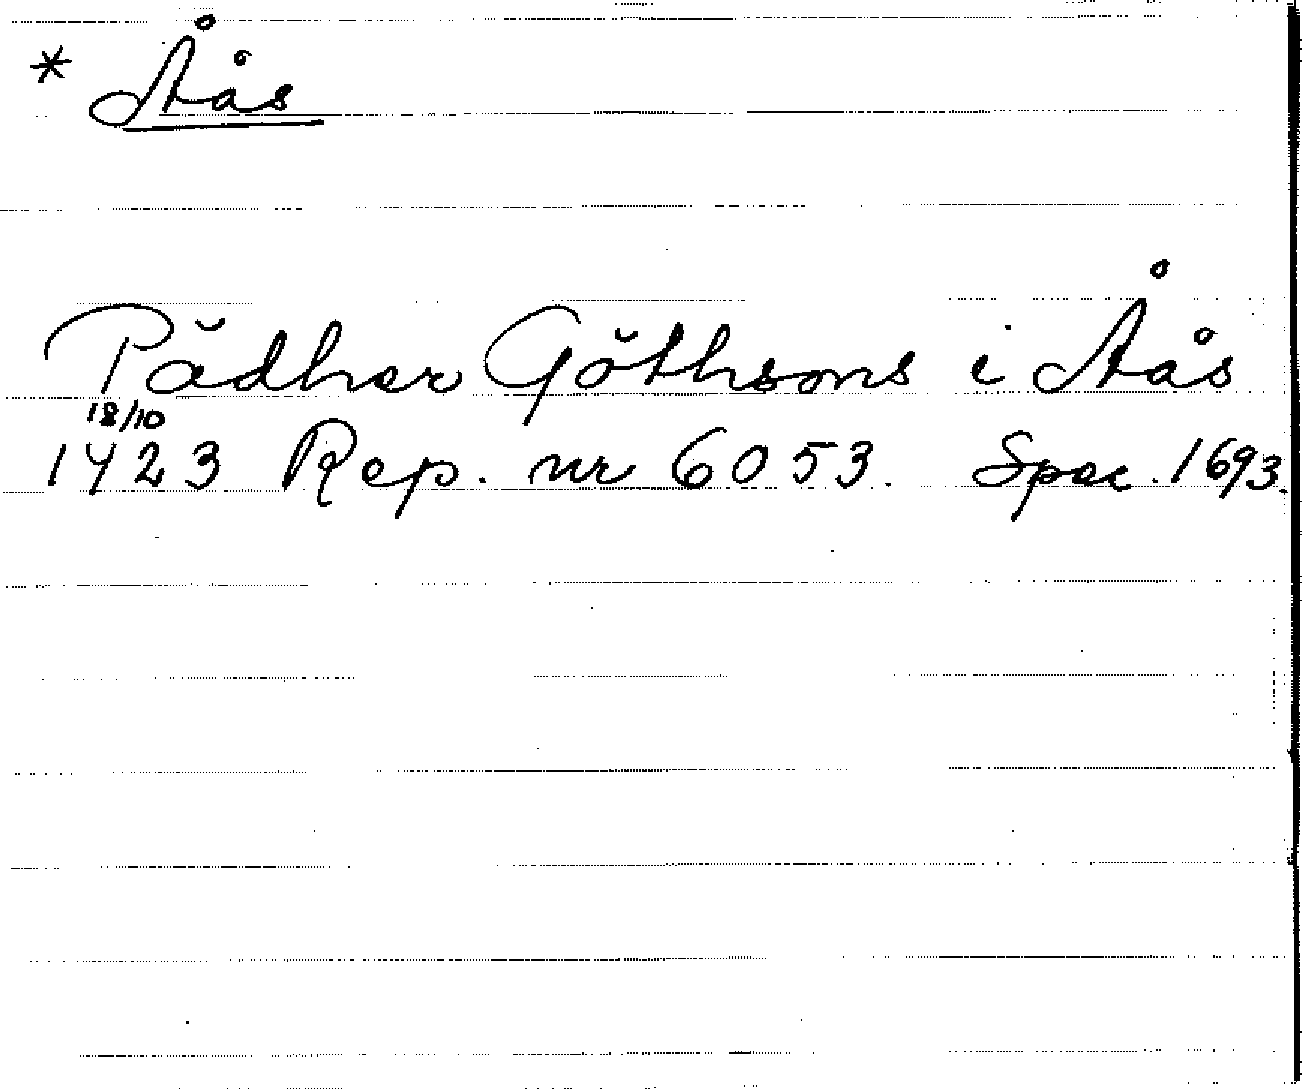 * Åås
Pädher Göthsons i Åås
18/10
1423 Rep. nr 6053. Spec. 1693.